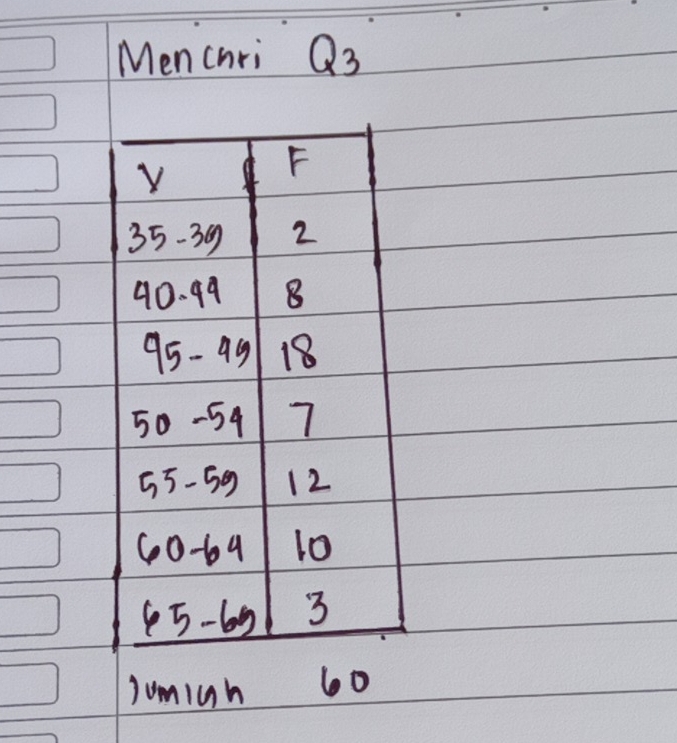 Mencari Q3
V F
35-39 2
40-44 8
45-49 18
50-54 7
55-59 12
60-64 10
65-69 3
Jumlah 60